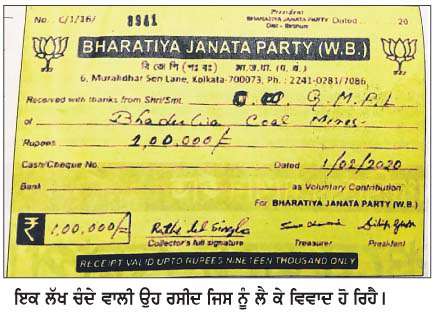 President
No. C/1/16/ 8941 BHARATIYA JANATA PARTY Dated 20
BHARATIYA JANATA PARTY (W.B.)
বি জে পি (পঃ বঃ) भा.ज.पा. (प. बं.)
6, Muralidhar Sen Lane, Kolkata-700073, Ph. : 2241-0281/7086,
Received with thanks from Shri/Smt. G.M.P.L
of Bhadulia Coal Mines
Rupees 1,00,000/-
Cash/Cheque No. Dated 1/02/2020
Bank as Voluntary Contribution
For BHARATIYA JANATA PARTY (W.B.)
₹ 1,00,000/-
Collector's full signature Treasurer President
RECEIPT VALID UPTO RUPEES NINETEEN THOUSAND ONLY
ਇਕ ਲੱਖ ਚੰਦੇ ਵਾਲੀ ਉਹ ਰਸੀਦ ਜਿਸ ਨੂੰ ਲੈ ਕੇ ਵਿਵਾਦ ਹੋ ਰਿਹੈ।